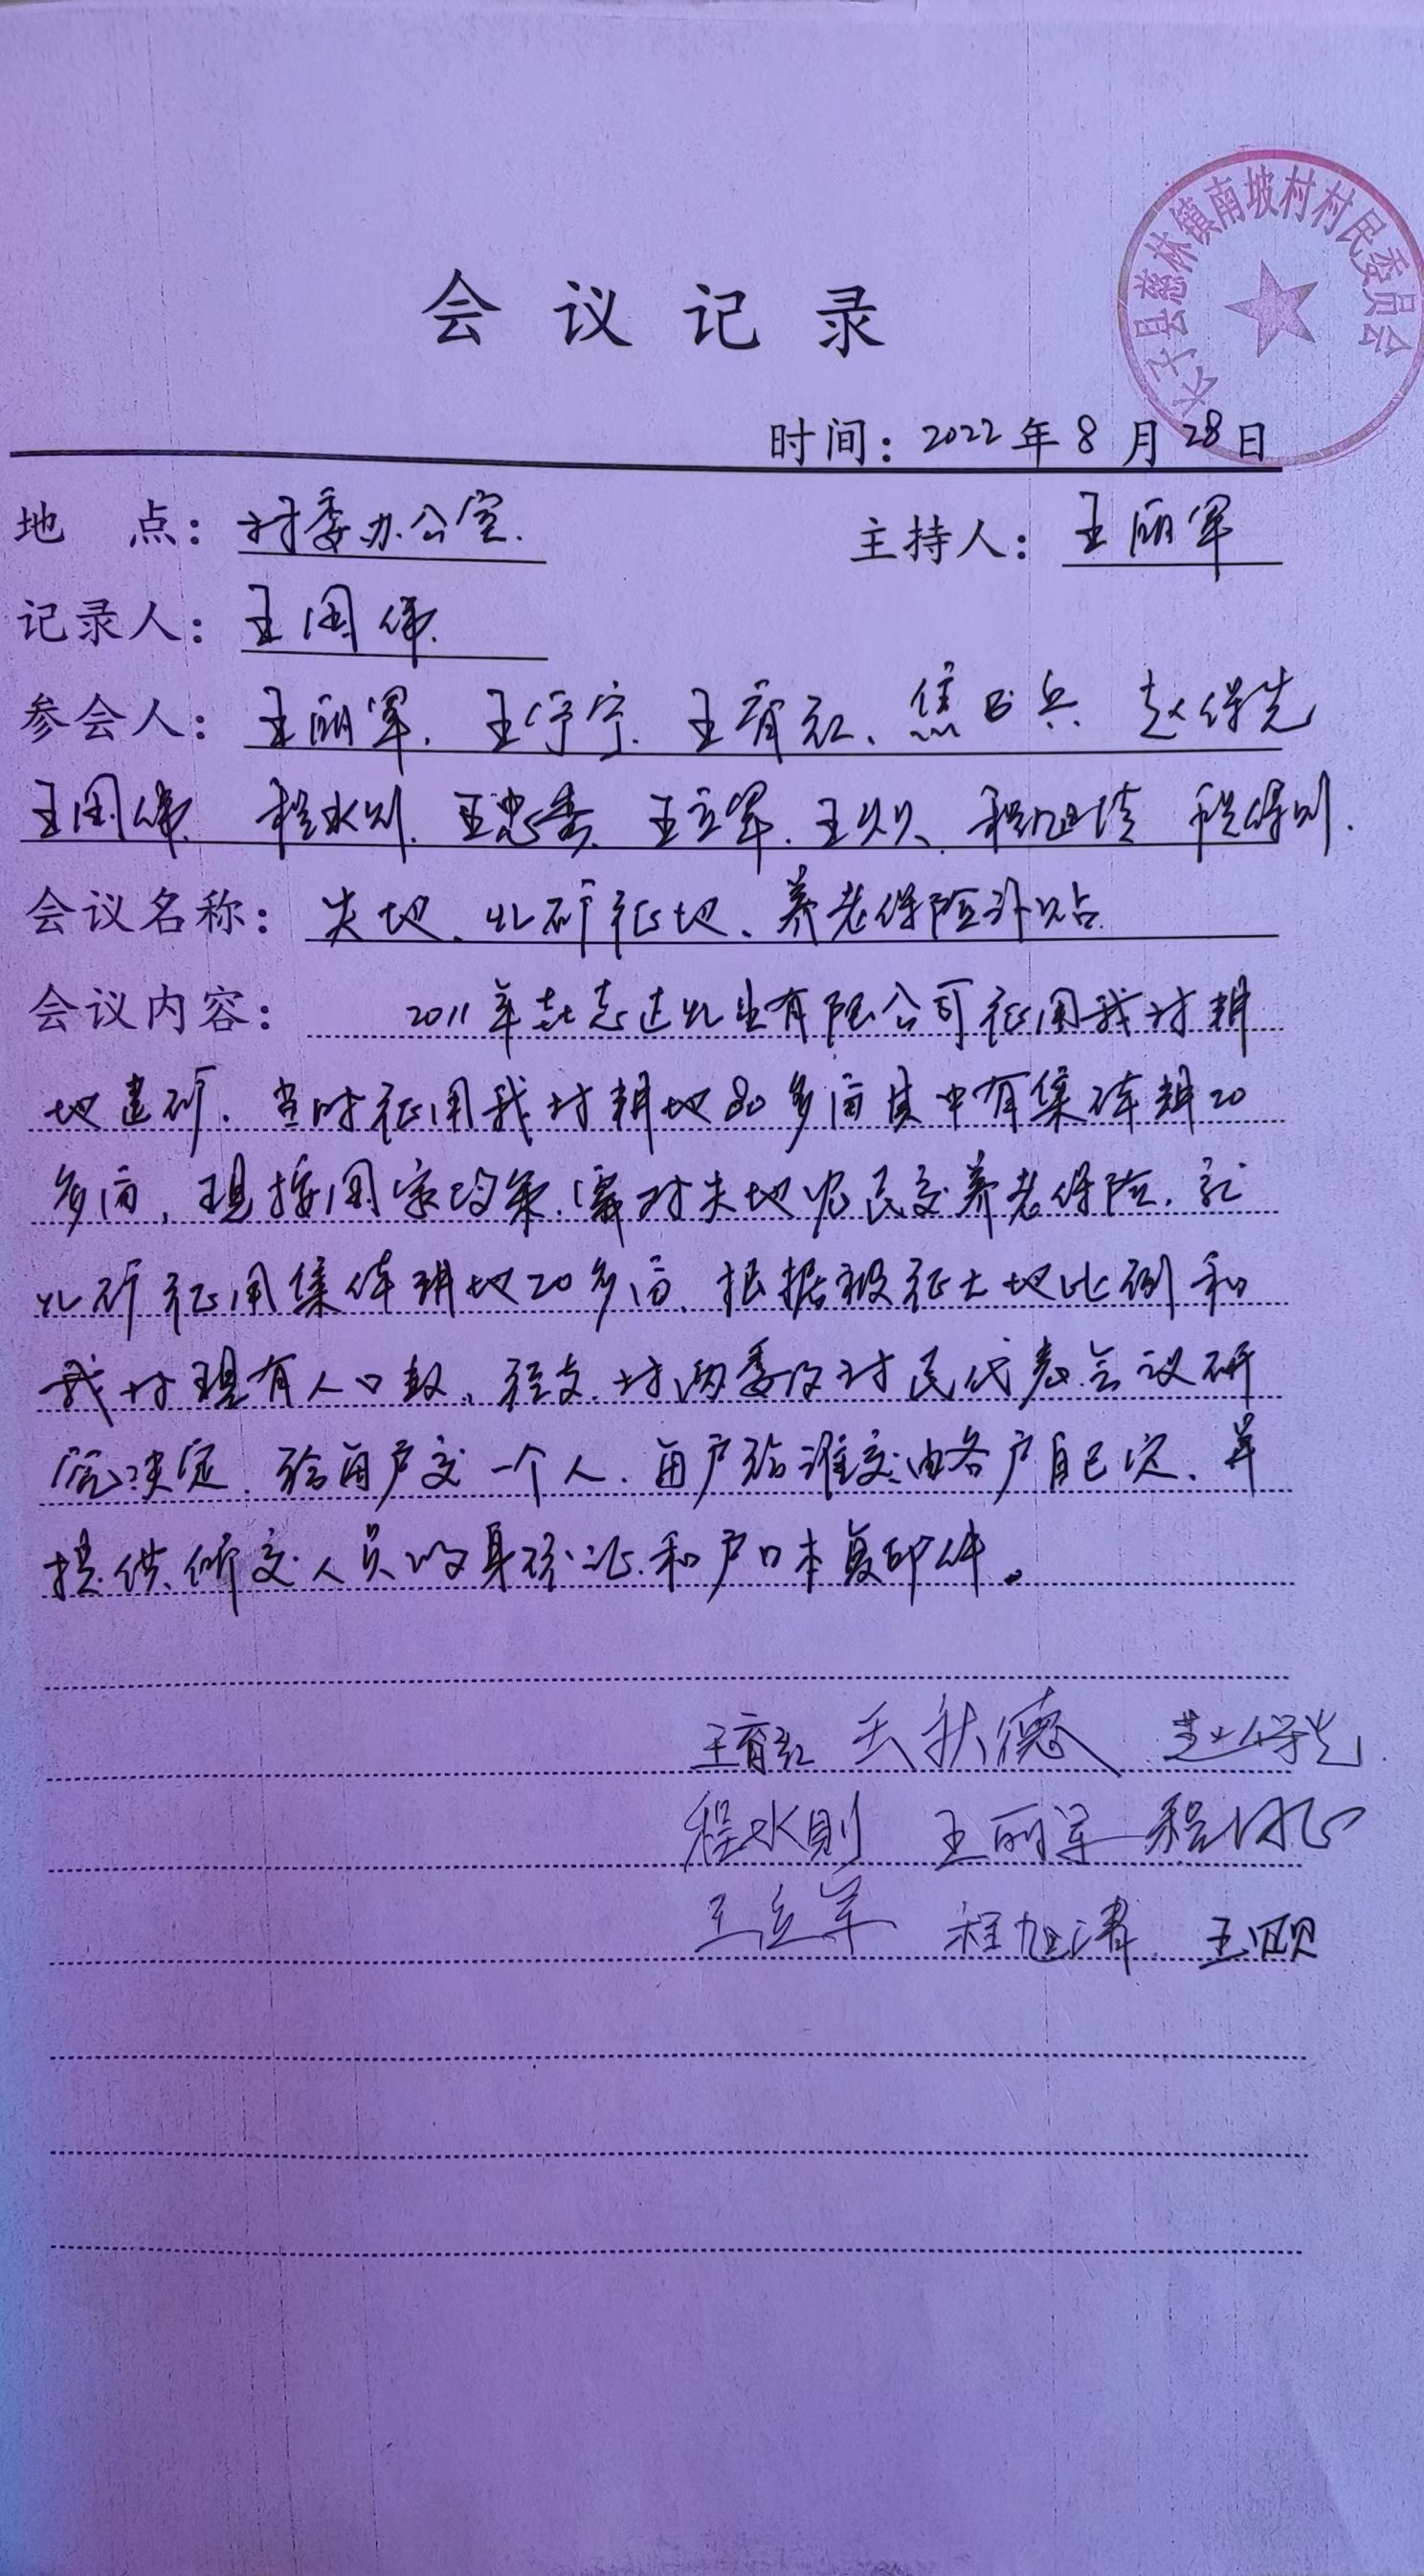 长子县慈林镇南坡村村民委员会
会议记录
时间：2022年8月28日
地 点：村委办公室. 主持人：王丽军
记录人：王国伟.
参会人：王丽军. 王宇宁. 王育红、焦 兵. 赵保先
王国伟. 程水则. 王忠委. 王立军. 王 、程旭涛 程保则.
会议名称：失地、北矿征地、养老保险补贴.
会议内容： 2011年 志达 业有限公司征用我村耕
地建矿. 当时征用我村耕地80多亩其中有集体耕20
多亩，现按国家政策.需对失地农民交养老保险.
北矿征用集体耕地20多亩、根据被征土地比例和
我村现有人口数、经支.村两委及村民代表会议研
究决定.给每户交一个人.每户给谁交由各户自己定、并
提供所交人员的身份证.和户口本复印件。
王育红 王秋德 赵保先
程水则 王丽军 程
王立军 程旭涛 王